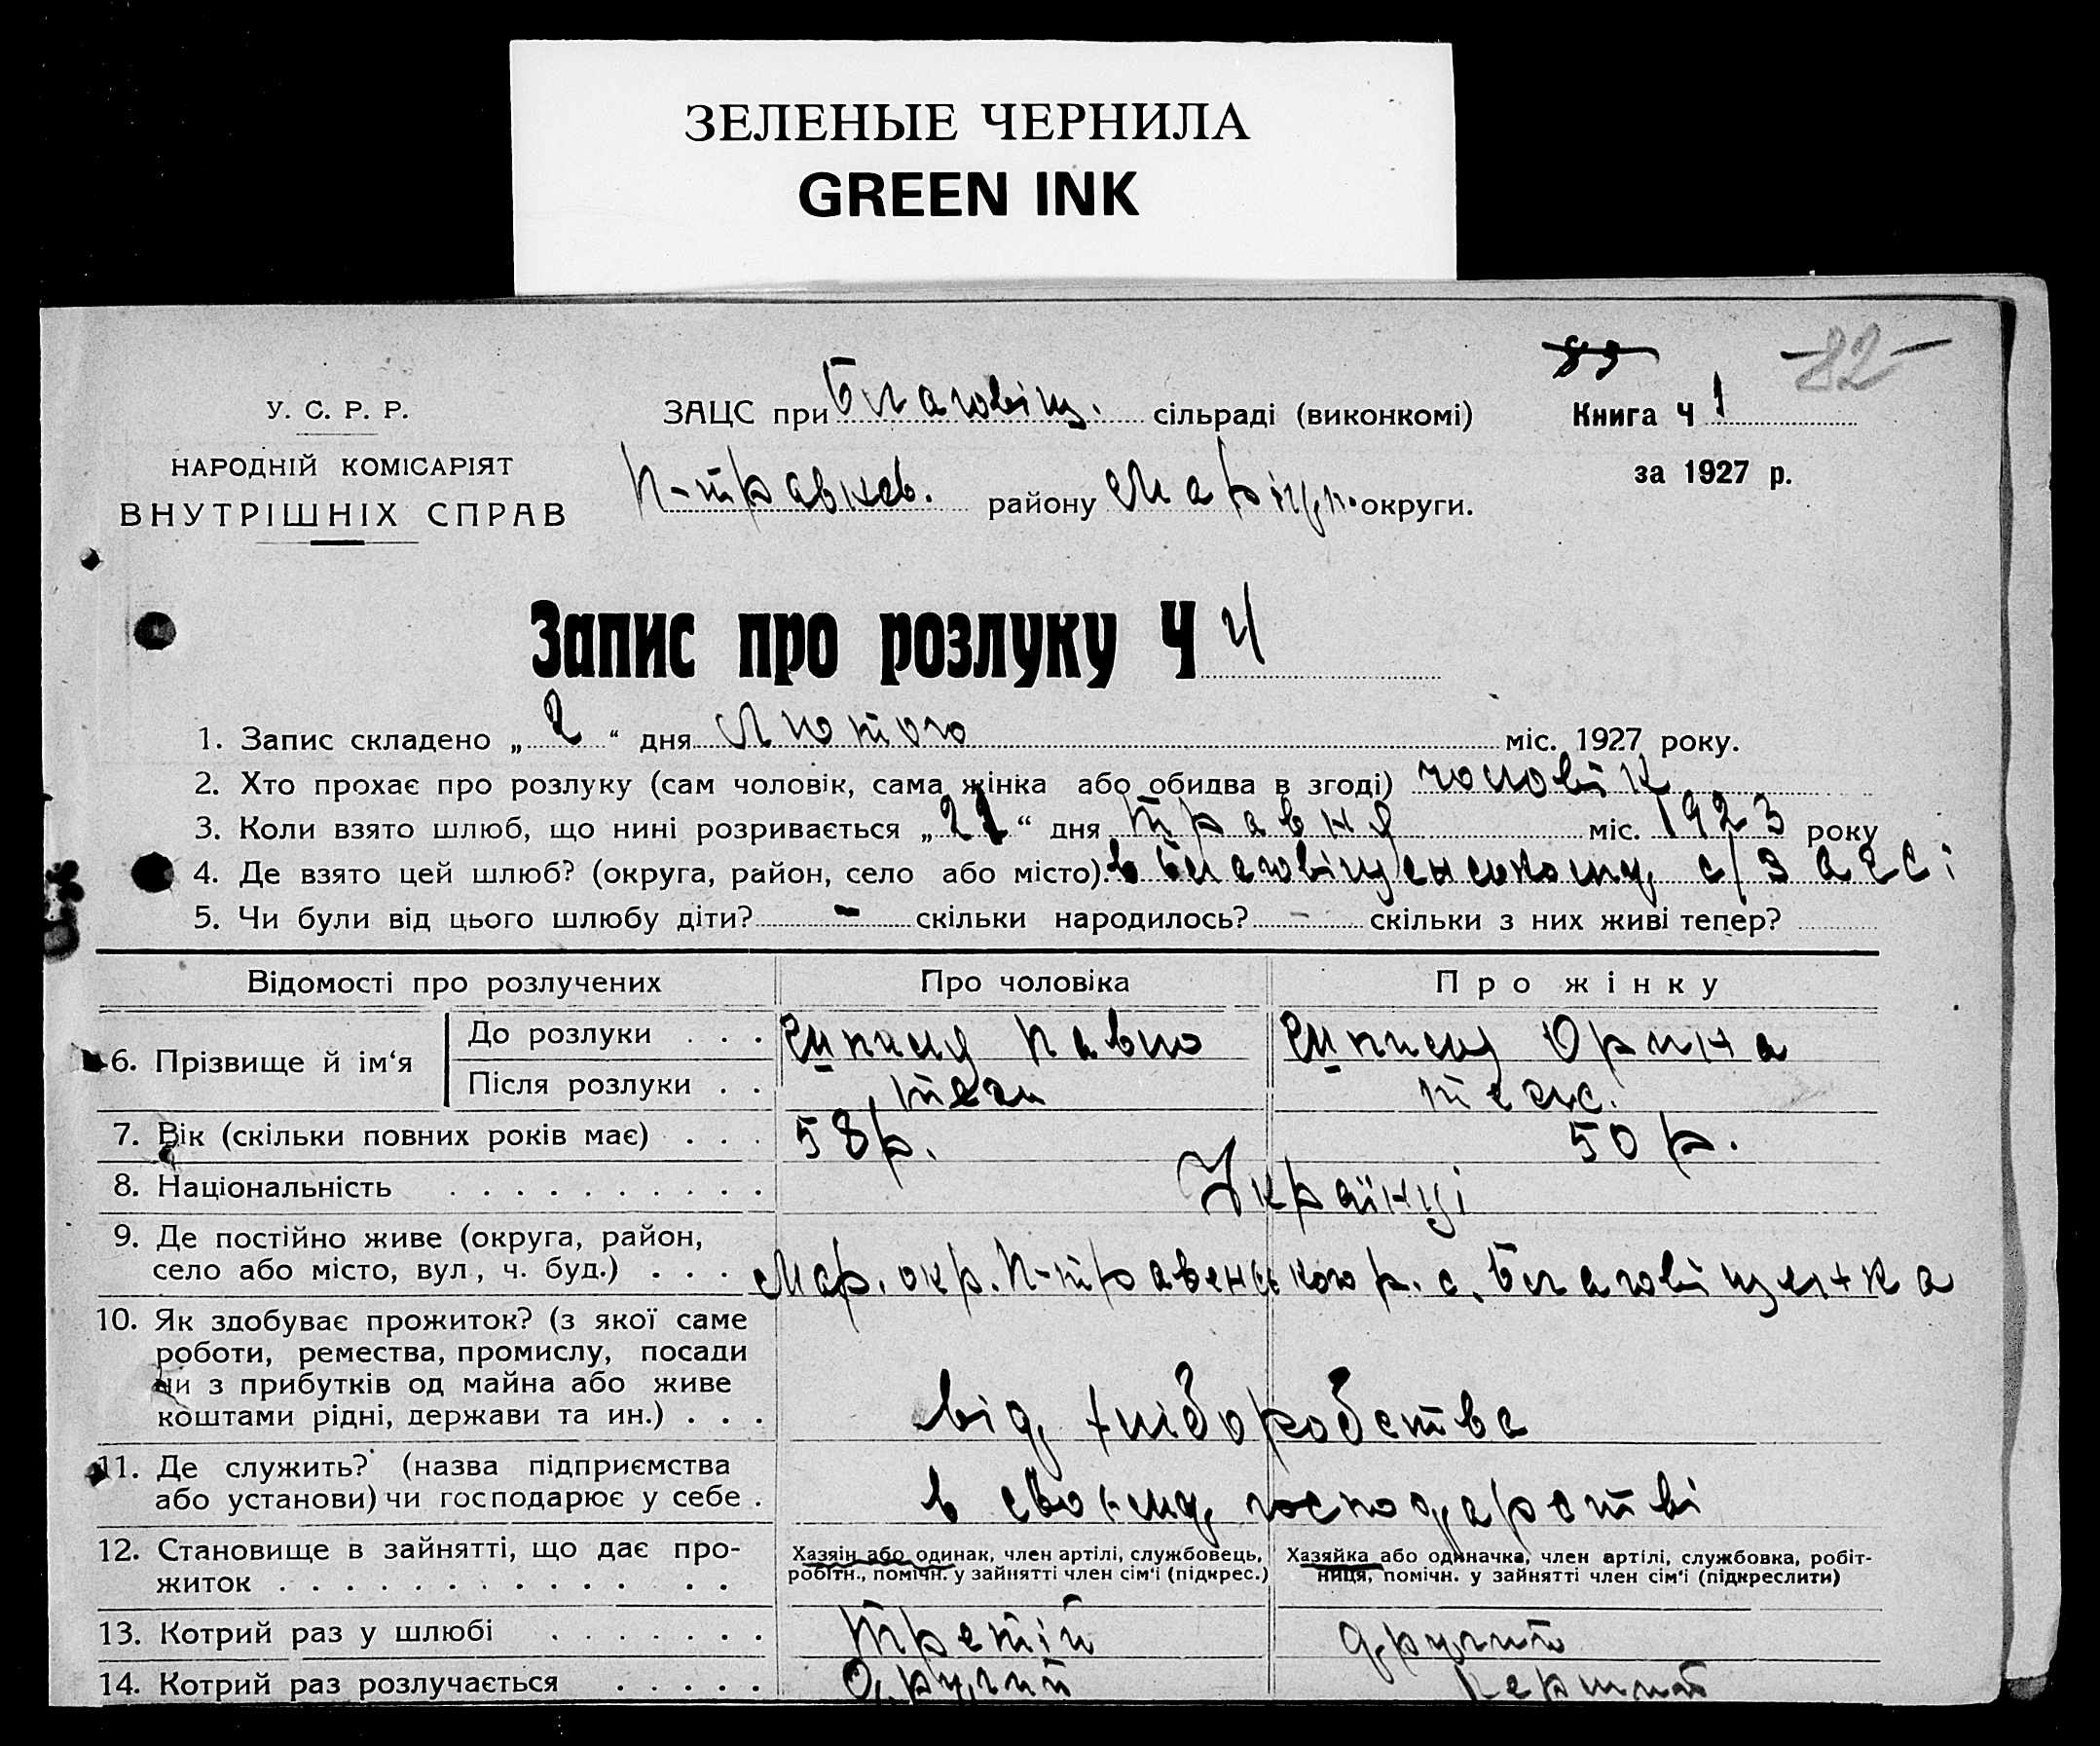 ЗЕЛЕНЫЕ ЧЕРНИЛА
GREEN INK
83 -82-
У. С. Р. Р.
НАРОДНІЙ КОМІСАРІЯТ
ВНУТРІШНІХ СПРАВ
ЗАЦС при Благовіщ. сільраді (виконкомі)
П-травнев. району Маріуп. округи.
Книга Ч 1
за 1927 р.
Запис про розлуку Ч 4
1. Запис складено „ 2 “ дня Лютого міс. 1927 року.
2. Хто прохає про розлуку (сам чоловік, сама жінка або обидва в згоді) чоловік
3. Коли взято шлюб, що нині розривається „ 21 “ дня травня міс. 1923 року
4. Де взято цей шлюб? (округа, район, село або місто). в Благовіщенському с/загсі
5. Чи були від цього шлюбу діти? - скільки народилось? - скільки з них живі тепер?
Відомості про розлучених Про чоловіка Про жінку
6. Прізвище й ім'я
До розлуки . . . Павло Орина
Після розлуки . . теж теж.
7. Вік (скільки повних років має) . . . 58 р. 50 р.
8. Національність . . . . . . . . . . Українці
9. Де постійно живе (округа, район,
село або місто, вул., ч. буд.) . . . Мар. окр. П-травенського р. с. Благовіщенка
10. Як здобуває прожиток? (з якої саме
роботи, ремества, промислу, посади
чи з прибутків од майна або живе
коштами рідні, держави та ин.) . . . від хліборобства
11. Де служить? (назва підприємства
або установи) чи господарює у себе . в своєму господарстві
12. Становище в зайнятті, що дає про-
житок . . . . . . . . . . . . . .
Хазяін або одинак, член артілі, службовець,
робітн., помічн. у зайнятті член сім'ї (підкрес.)
Хазяйка або одиначка, член артілі, службовка, робіт-
ниця, помічн. у зайнятті член сім'ї (підкреслити)
13. Котрий раз у шлюбі . . . . . . . третій другий
14. Котрий раз розлучається . . . . . другий перший